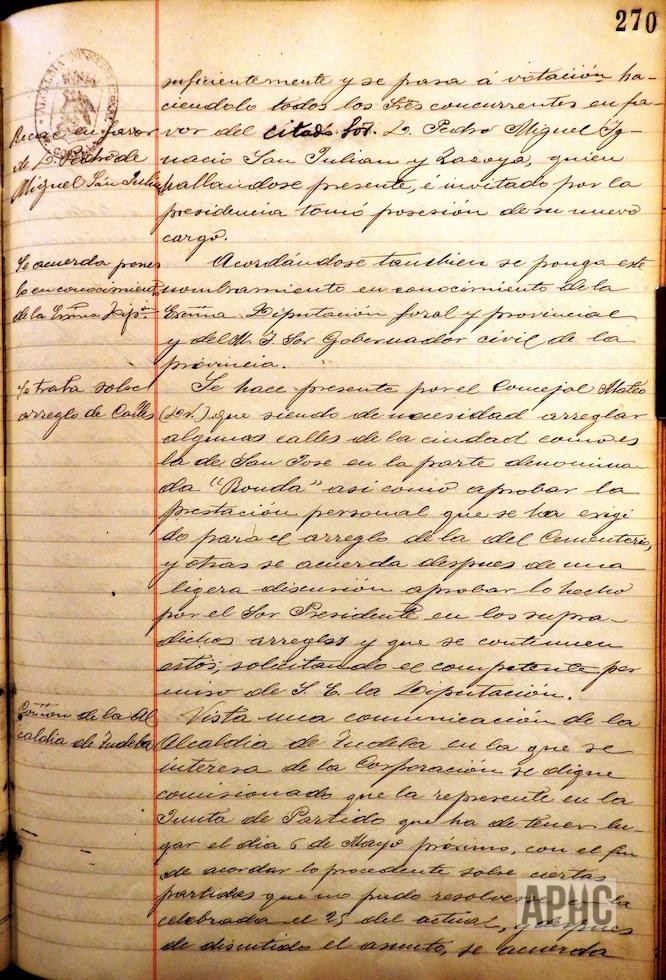 270
suficientemente y se pasa á votación ha-
ciendolo todos los Sres concurrentes en fa-
vor del citado Sor. D. Pedro Miguel Ig-
nacio San Julian y Zazoya, quien
hallandose presente, é invitado por la
presidencia tomó posesión de su nuevo
cargo.
Recae en favor
de D. Pedro de
Miguel San Julian
Acordándose tambien se ponga este
nombramiento en conocimiento de la
Exma Diputación foral y provincial
y del M. I. Sor Gobernador civil de la
provincia.
Se acuerda poner
lo en conocimiento
de la Exma Dipn.
Se hace presente por el Concejal Mateo
que siendo de necesidad arreglar
algunas calles de la ciudad como es
la de San Jose en la parte denomina
da "Ronda" asi como aprobar la
prestación personal que se ha exigi
do para el arreglo de la del Cementerio,
y otras se acuerda despues de una
ligera discusión aprobar lo hecho
por el Sor Presidente en los supra-
dichos arreglos y que se continuen
estos, solicitando el competente per
miso de S. E. la Diputación.
Se trata sobre
arreglo de Calles
Vista una comunicación de la
Alcaldia de Tudela en la que se
interesa de la Corporación se digne
comisionado que la represente en la
Junta de Partido que ha de tener lu-
gar el dia 6 de Mayo próximo, con el fin
de acordar lo procedente sobre ciertas
partidas que no pudo resolverse en la
celebrada el 25 del actual, y despues
de discutido el asunto, se acuerda
de la Al
caldia de Tudela
APHC